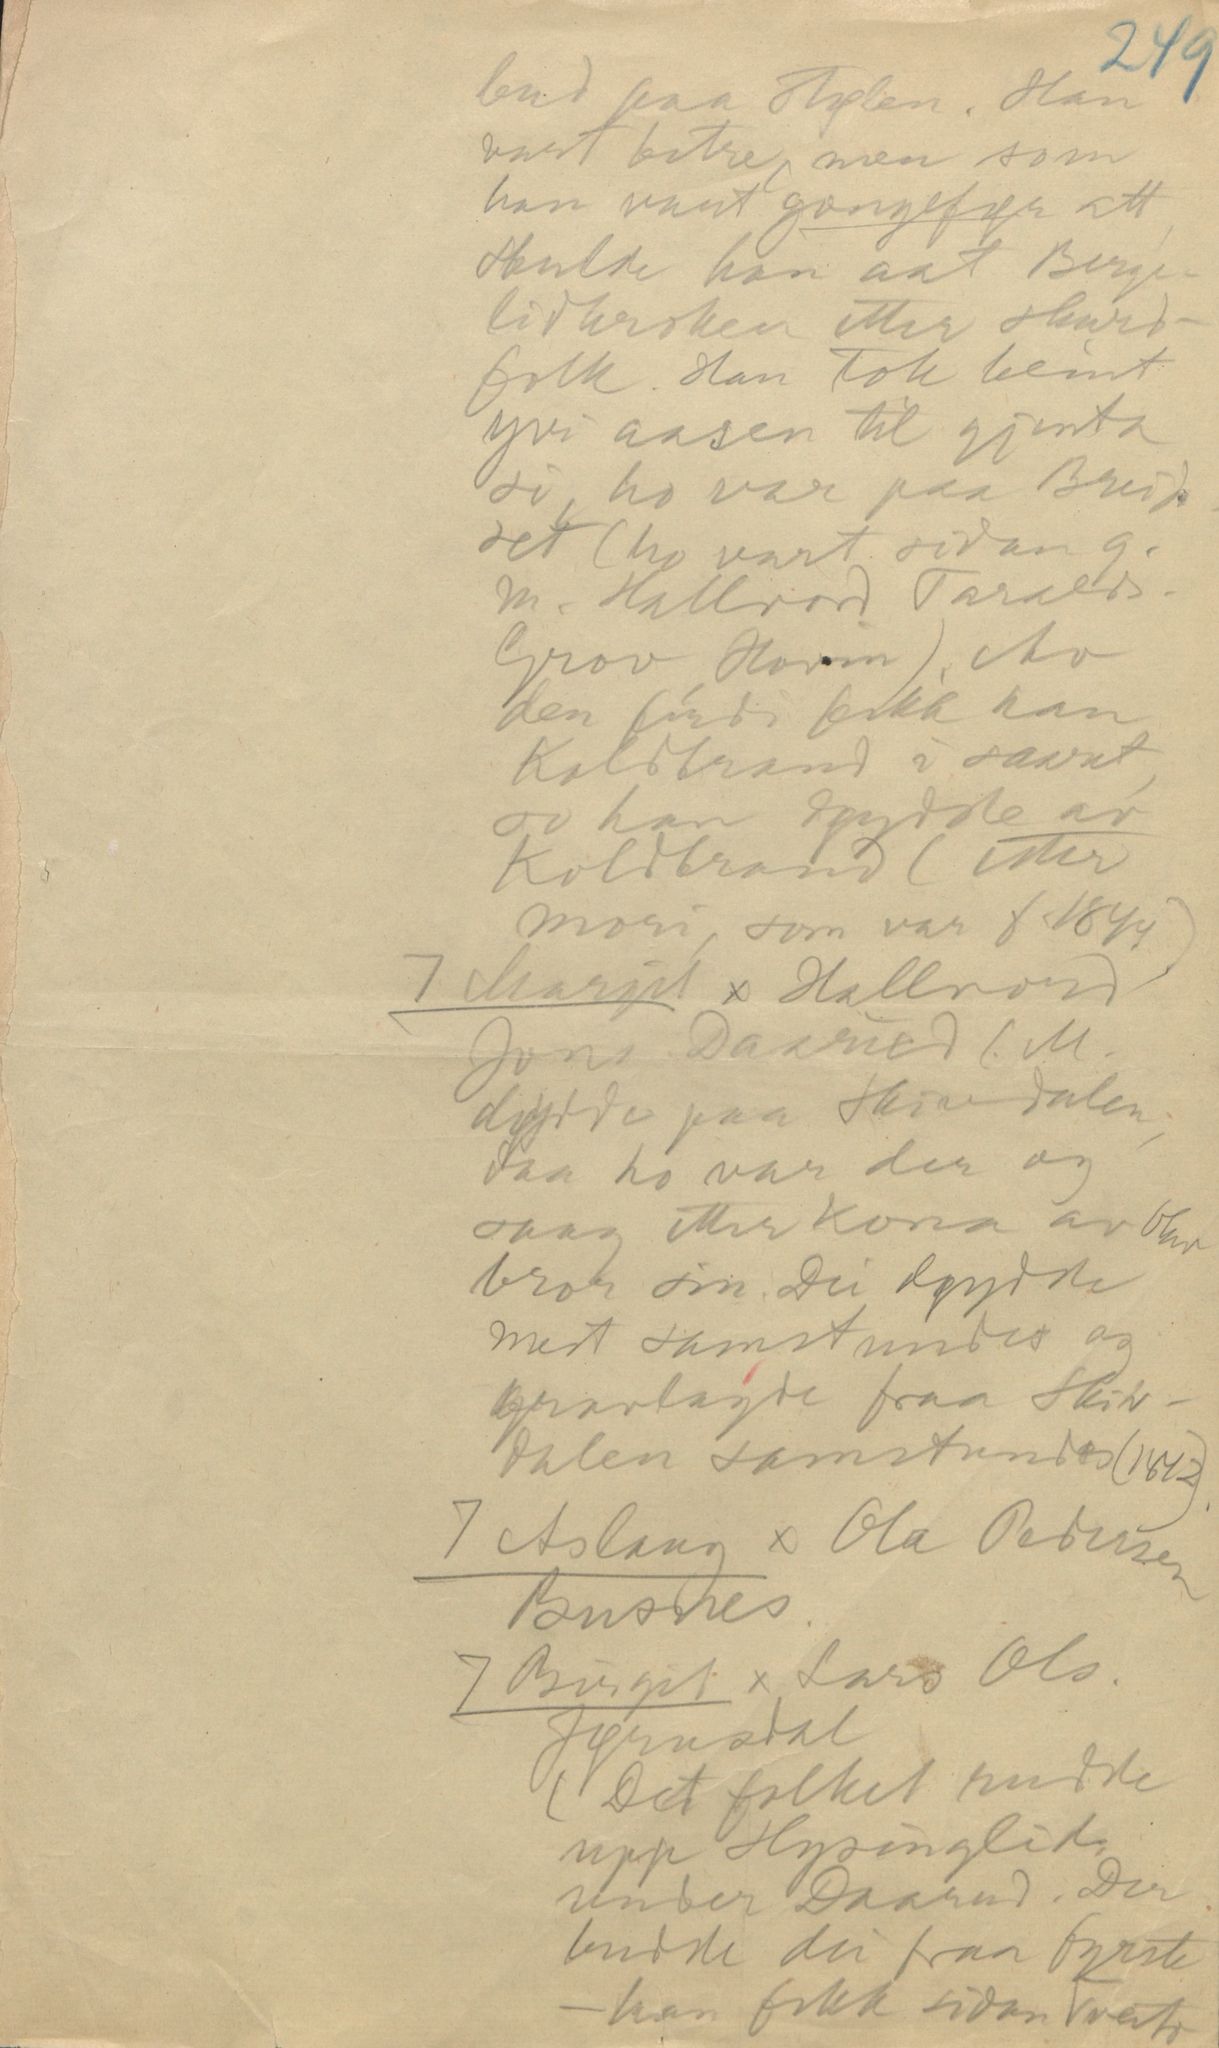 249
bud paa Stylen. Han
vart betre, men som
han vart gongefør att,
skulde han aat Berge-
lidkroken etter skurd-
folk. Han tok beint
yvi aasen til gjenta
si, ho var paa Breid-
set (ho vart sidan g.
m. Hallvord Taralds.
Grov, Hovin). Av
den ferdi fekk han
Koldbrand i saaret,
so han døydde av
Koldbrand (etter
mori, som var f 1844)
7 Margit x Hallvord
Jons. Daarud (. M.
døydde paa Skirvdalen,
daa ho var der og
saag etter kona av
bror sin. Dei døydde
mest samstundes og
gravlagde fraa Skirv-
dalen samstundes (1842).
7 Aslaug x Ola Pedersen
Busnes.
7 Birgit x Lars Ols.
Jønsdal
(Det folket rudde
upp Hysinglid,
under Daarud. Der
budde dei fraa fyrste
- han fekk sidan